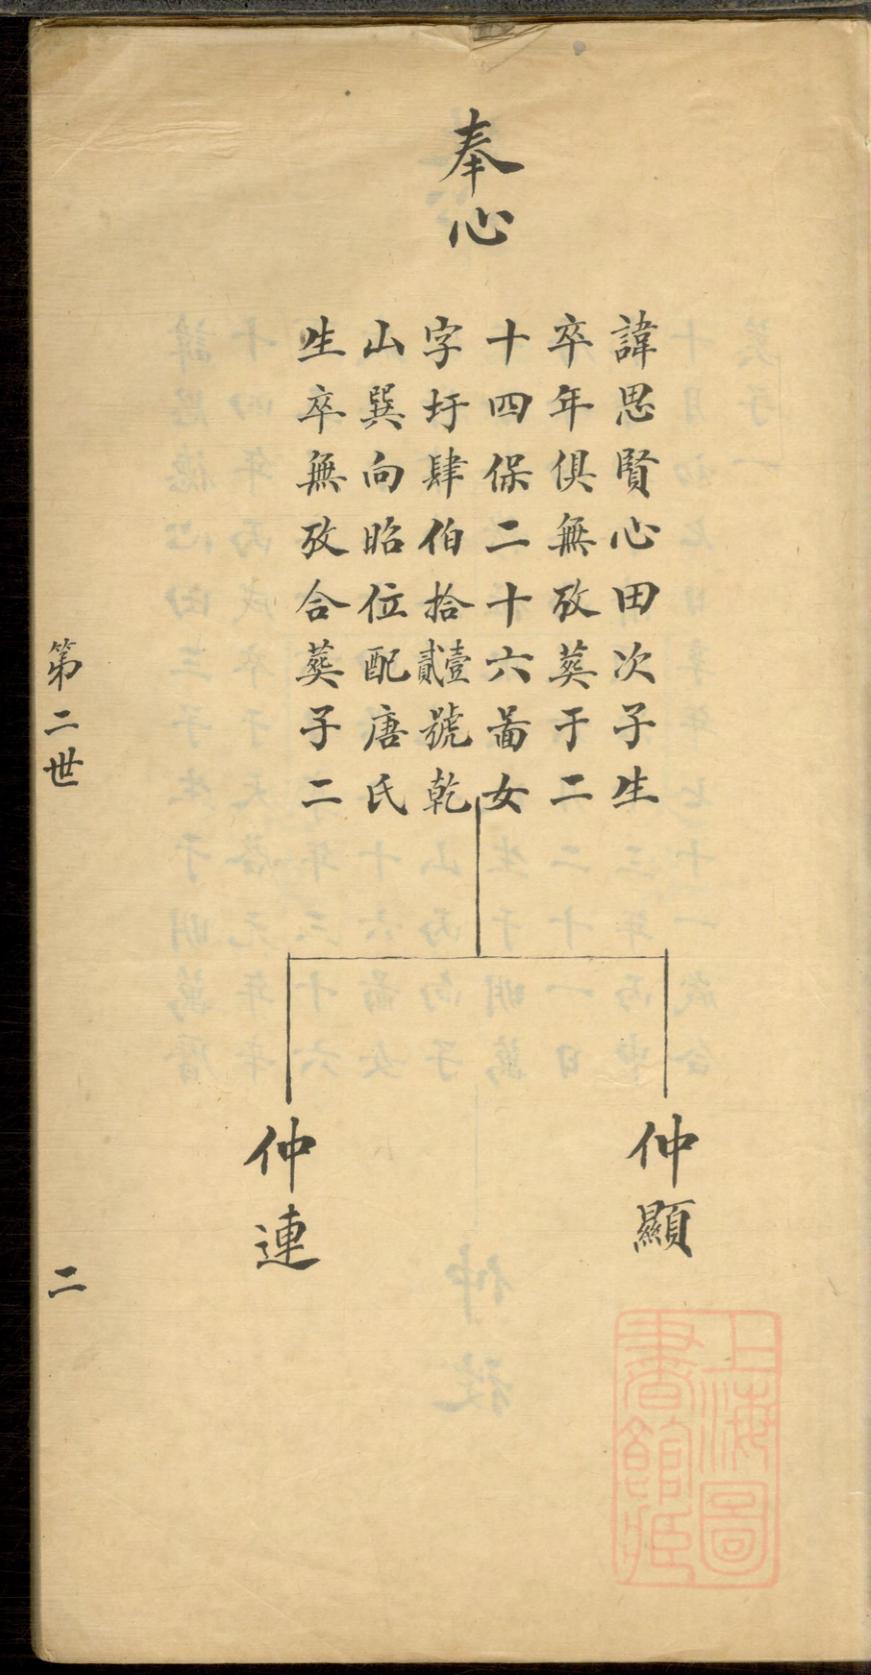 奉心
諱思賢心田次子生
卒年俱無攷葬于二
十四保二十六啚女
字圩肆伯拾壹貳號乾
山巽向昭位配唐氏
生卒無攷合葬子二
仲顯
仲連
第二世
二
上海圖
書館藏